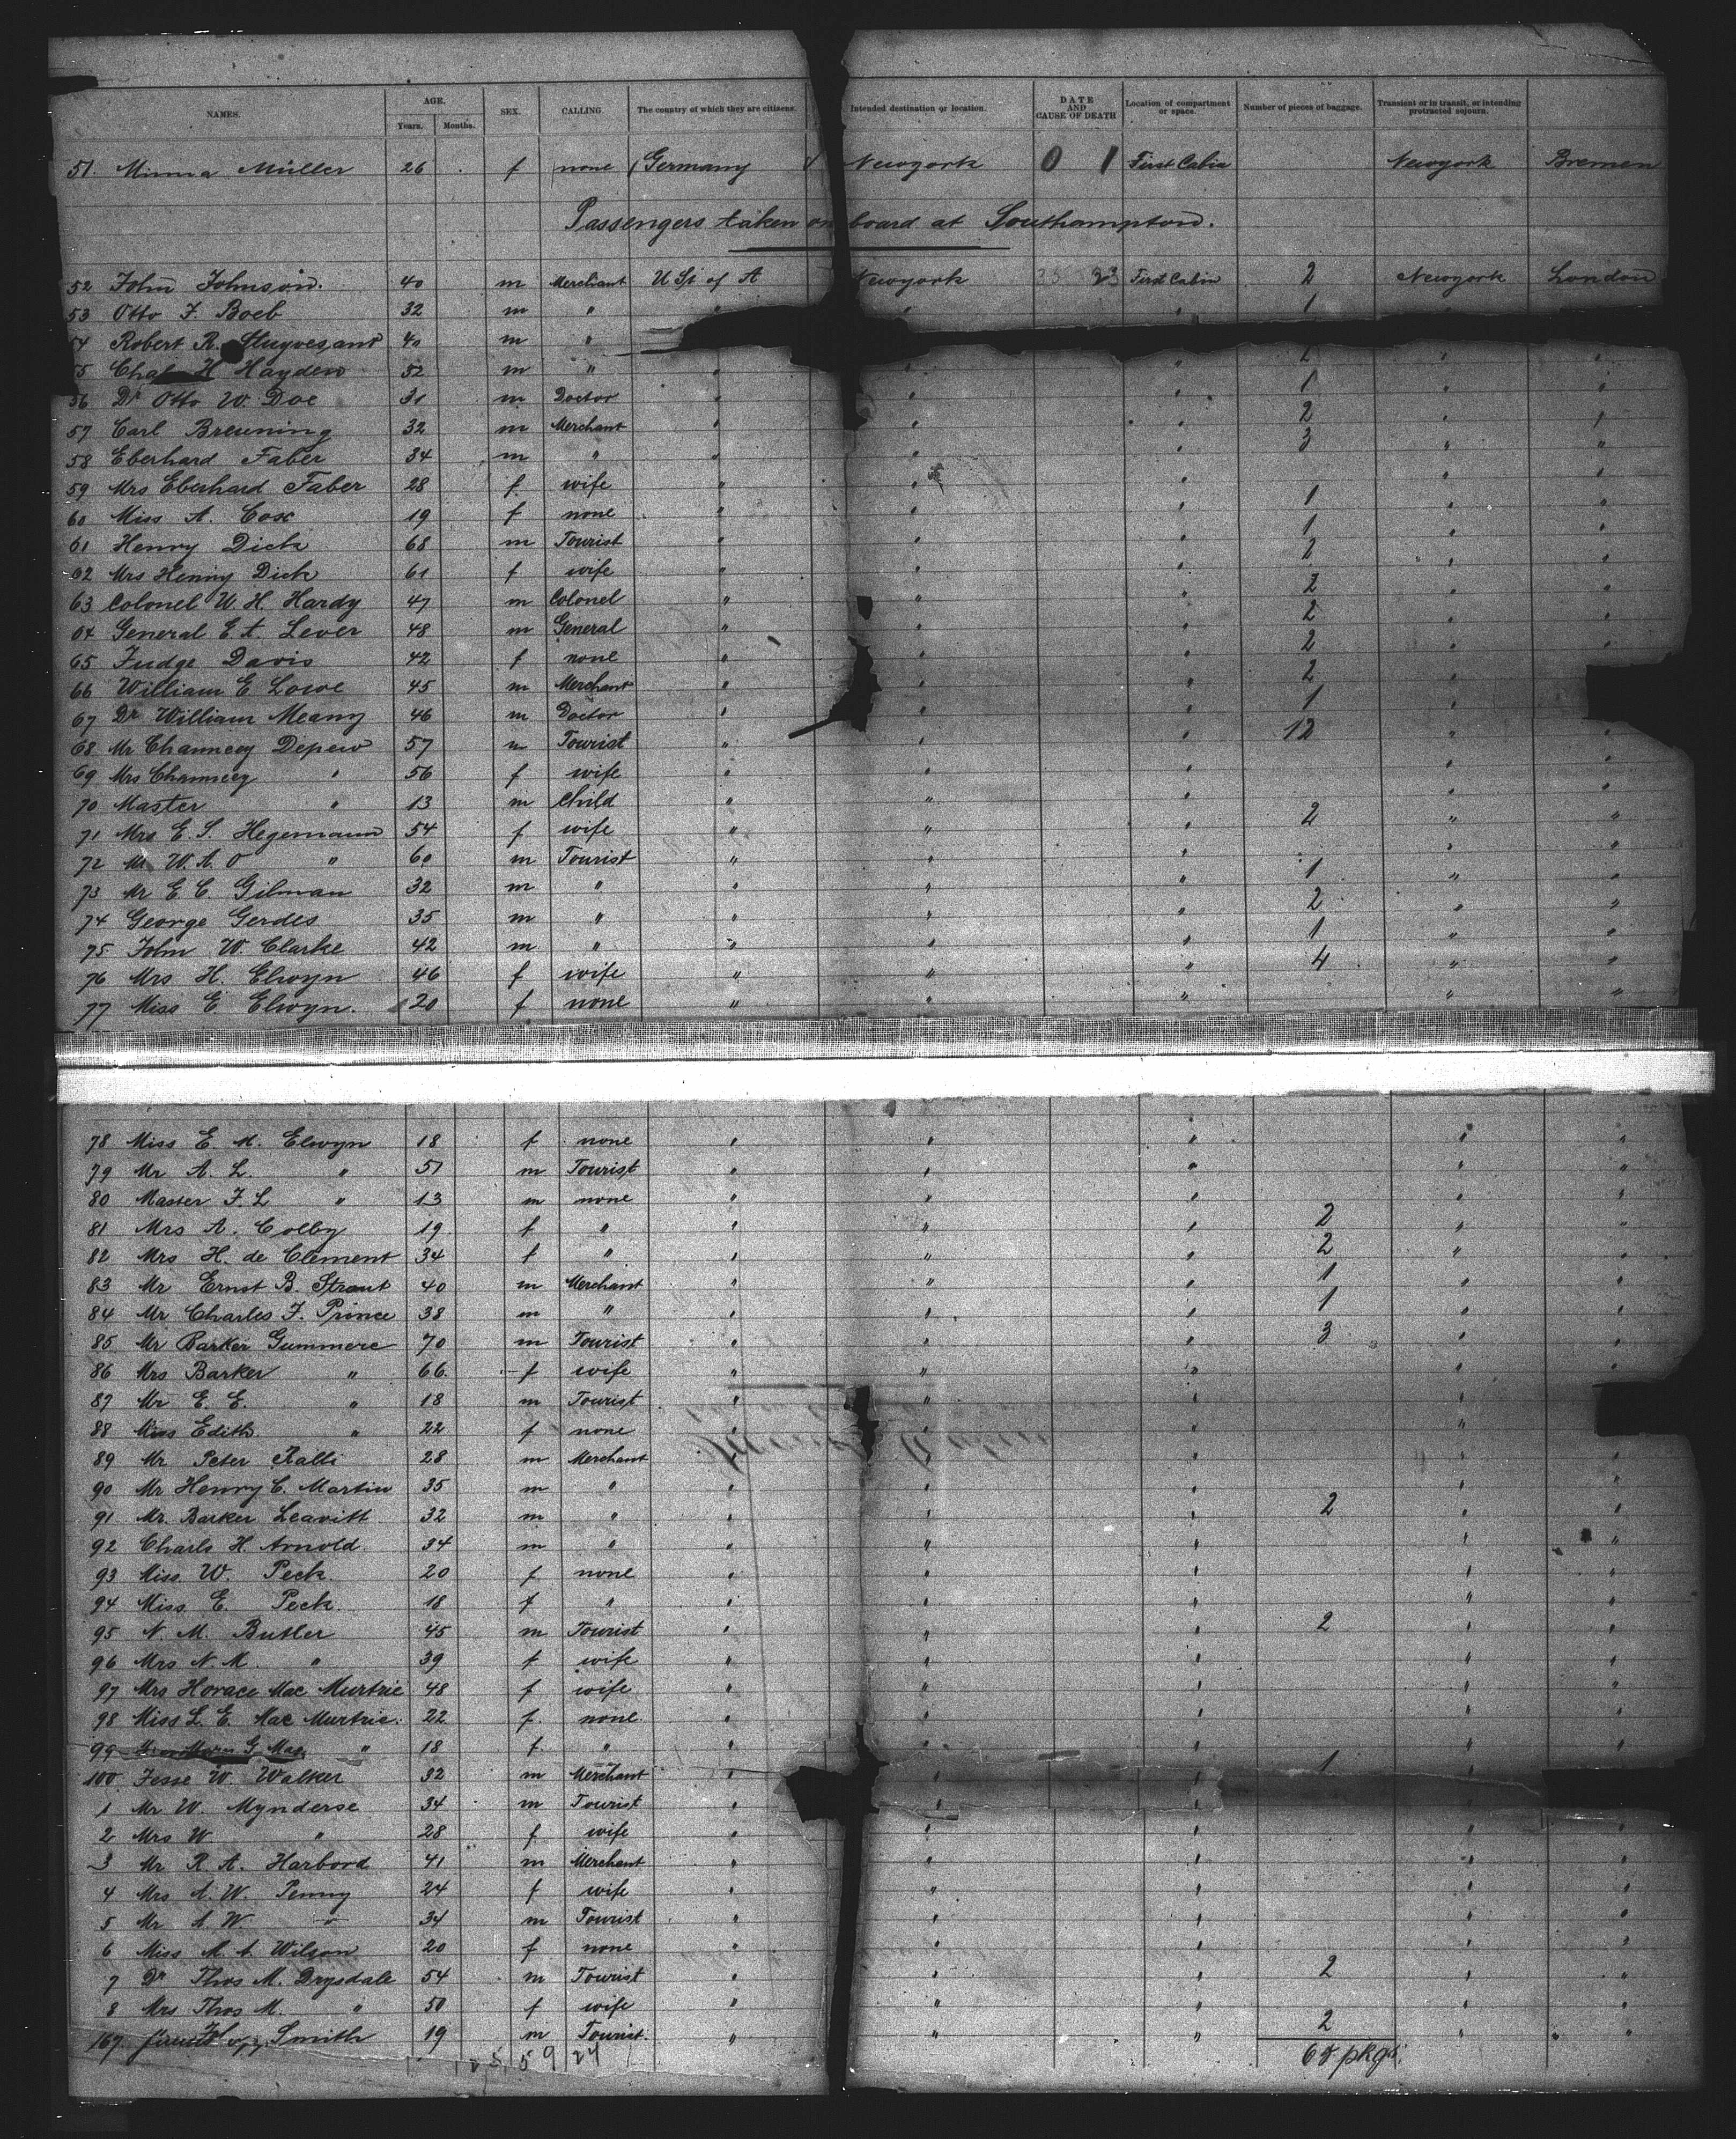 NAMES. AGE. Years. Months. SEX. CALLING. The country of which they are citizens. Intended destination or location. DATE AND CAUSE OF DEATH Location of compartment or space. Number of pieces of baggage. Transient or in transit, or intending protracted sojourn.
51. Minna Müller 26 f none Germany Newyork 0 1 First Cabin Newyork Bremen
Passengers taken on board at Southampton.
52 John Johnson. 40 m Merchant U St of A Newyork 23 First Cabin 2 Newyork London
53 Otto F. Boeb 32 m " " " " 1
54 Robert R. Stuyvesant 40 m "
55 Chas H Hayden 52 m " " " " 2 " "
56 Dr Otto W. Doe 31 m Doctor " " " 1 " "
57 Carl Breuning 32 m Merchant " " " 2 " "
58 Eberhard Faber 34 m " " " " 3 " "
59 Mrs Eberhard Faber 28 f. wife " " " " "
60 Miss A. Cox 19 f none " " " 1 " "
61 Henry Dick 68 m Tourist " " " 1 " "
62 Mrs Henry Dick 61 f wife " " " 2 " "
63 Colonel W. H. Hardy 47 m Colonel " " " 2 " "
64 General E. A. Lever 48 m General " " " 2 " "
65 Judge Davis 42 f none " " " 2 " "
66 William E Lowe 45 m Merchant " " " 2 "
67 Dr William Meany 46 m Doctor " " " 1 "
68 Mr Chauncey Depew 57 m Tourist " " " 12 " "
69 Mrs Chauncey " 56 f wife " " " " "
70 Master " 13 m Child " " " " "
71 Mrs E. S. Hegemann 54 f wife " " " 2 " "
72 Mr. W. A. O " 60 m Tourist " " " " "
73 Mr E C. Gilman 32 m " " " " 1 " "
74 George Gerdes 35 m " " " " 2 " "
75. John W. Clarke 42 m " " " " 1 " "
76 Mrs H. Elwyn 46 f wife " " " 4 " "
77 Miss E Elwyn. 20 f none " " " " "
78 Miss E M. Elwyn 18 f none " " " " "
79 Mr A. L. " 51 m Tourist " " " " "
80 Master F. L " 13 m none " " " " "
81 Mrs A. Colby 19 f " " " " 2 " "
82 Mrs H. de Clement 34 f " " " " 2 " "
83 Mr Ernst B. Straut 40 m Merchant " " " 1 " "
84 Mr Charles F. Prince 38 m " " " " 1 " "
85. Mr Barker Gummere 70 m Tourist " " " 3 " "
86 Mrs Barker " 66. f wife " " " " "
87 Mr E. E. " 18 m Tourist " " " "
88 Miss Edith " 22 f none " " " "
89 Mr Peter Ralli 28 m Merchant " " " " "
90 Mr Henry C. Martin 35 m " " " " " "
91 Mr. Barker Leavitt 32 m " " " " 2 " "
92 Charls H. Arnold 34 m " " " " " "
93 Miss. W. Peck 20 f none " " " " "
94 Miss E. Peck 18 f " " " " " "
95 N. M. Butler 45 m Tourist " " " 2 " "
96 Mrs N. M. " 39 f wife " " " " "
97 Mrs Horace Mac Murtrie 48 f wife " " " " "
98 Miss L. E. Mac Murtrie. 22 f. none. " " " " "
99 G Mac " 18 f. " " " " " "
100. Jesse W. Walker 32 m Merchant " " " 1 "
1 Mr W. Mynderse 34 m Tourist " " " "
2 Mrs W. " 28 f wife " " " " "
3 Mr R A. Harbord 41 m Merchant " " " " "
4 Mrs A. W. Penny 24 f wife " " " " "
5 Mr A. W. " 34 m Tourist " " " " "
6 Miss M. A. Wilson 20 f none " " " " "
7 Dr Thos M. Drysdale 54 m Tourist " " " 2 " "
8 Mrs Thos M. " 50 f wife " " " " "
Smith 19 m Tourist. " " " 2 " "
pkgs.